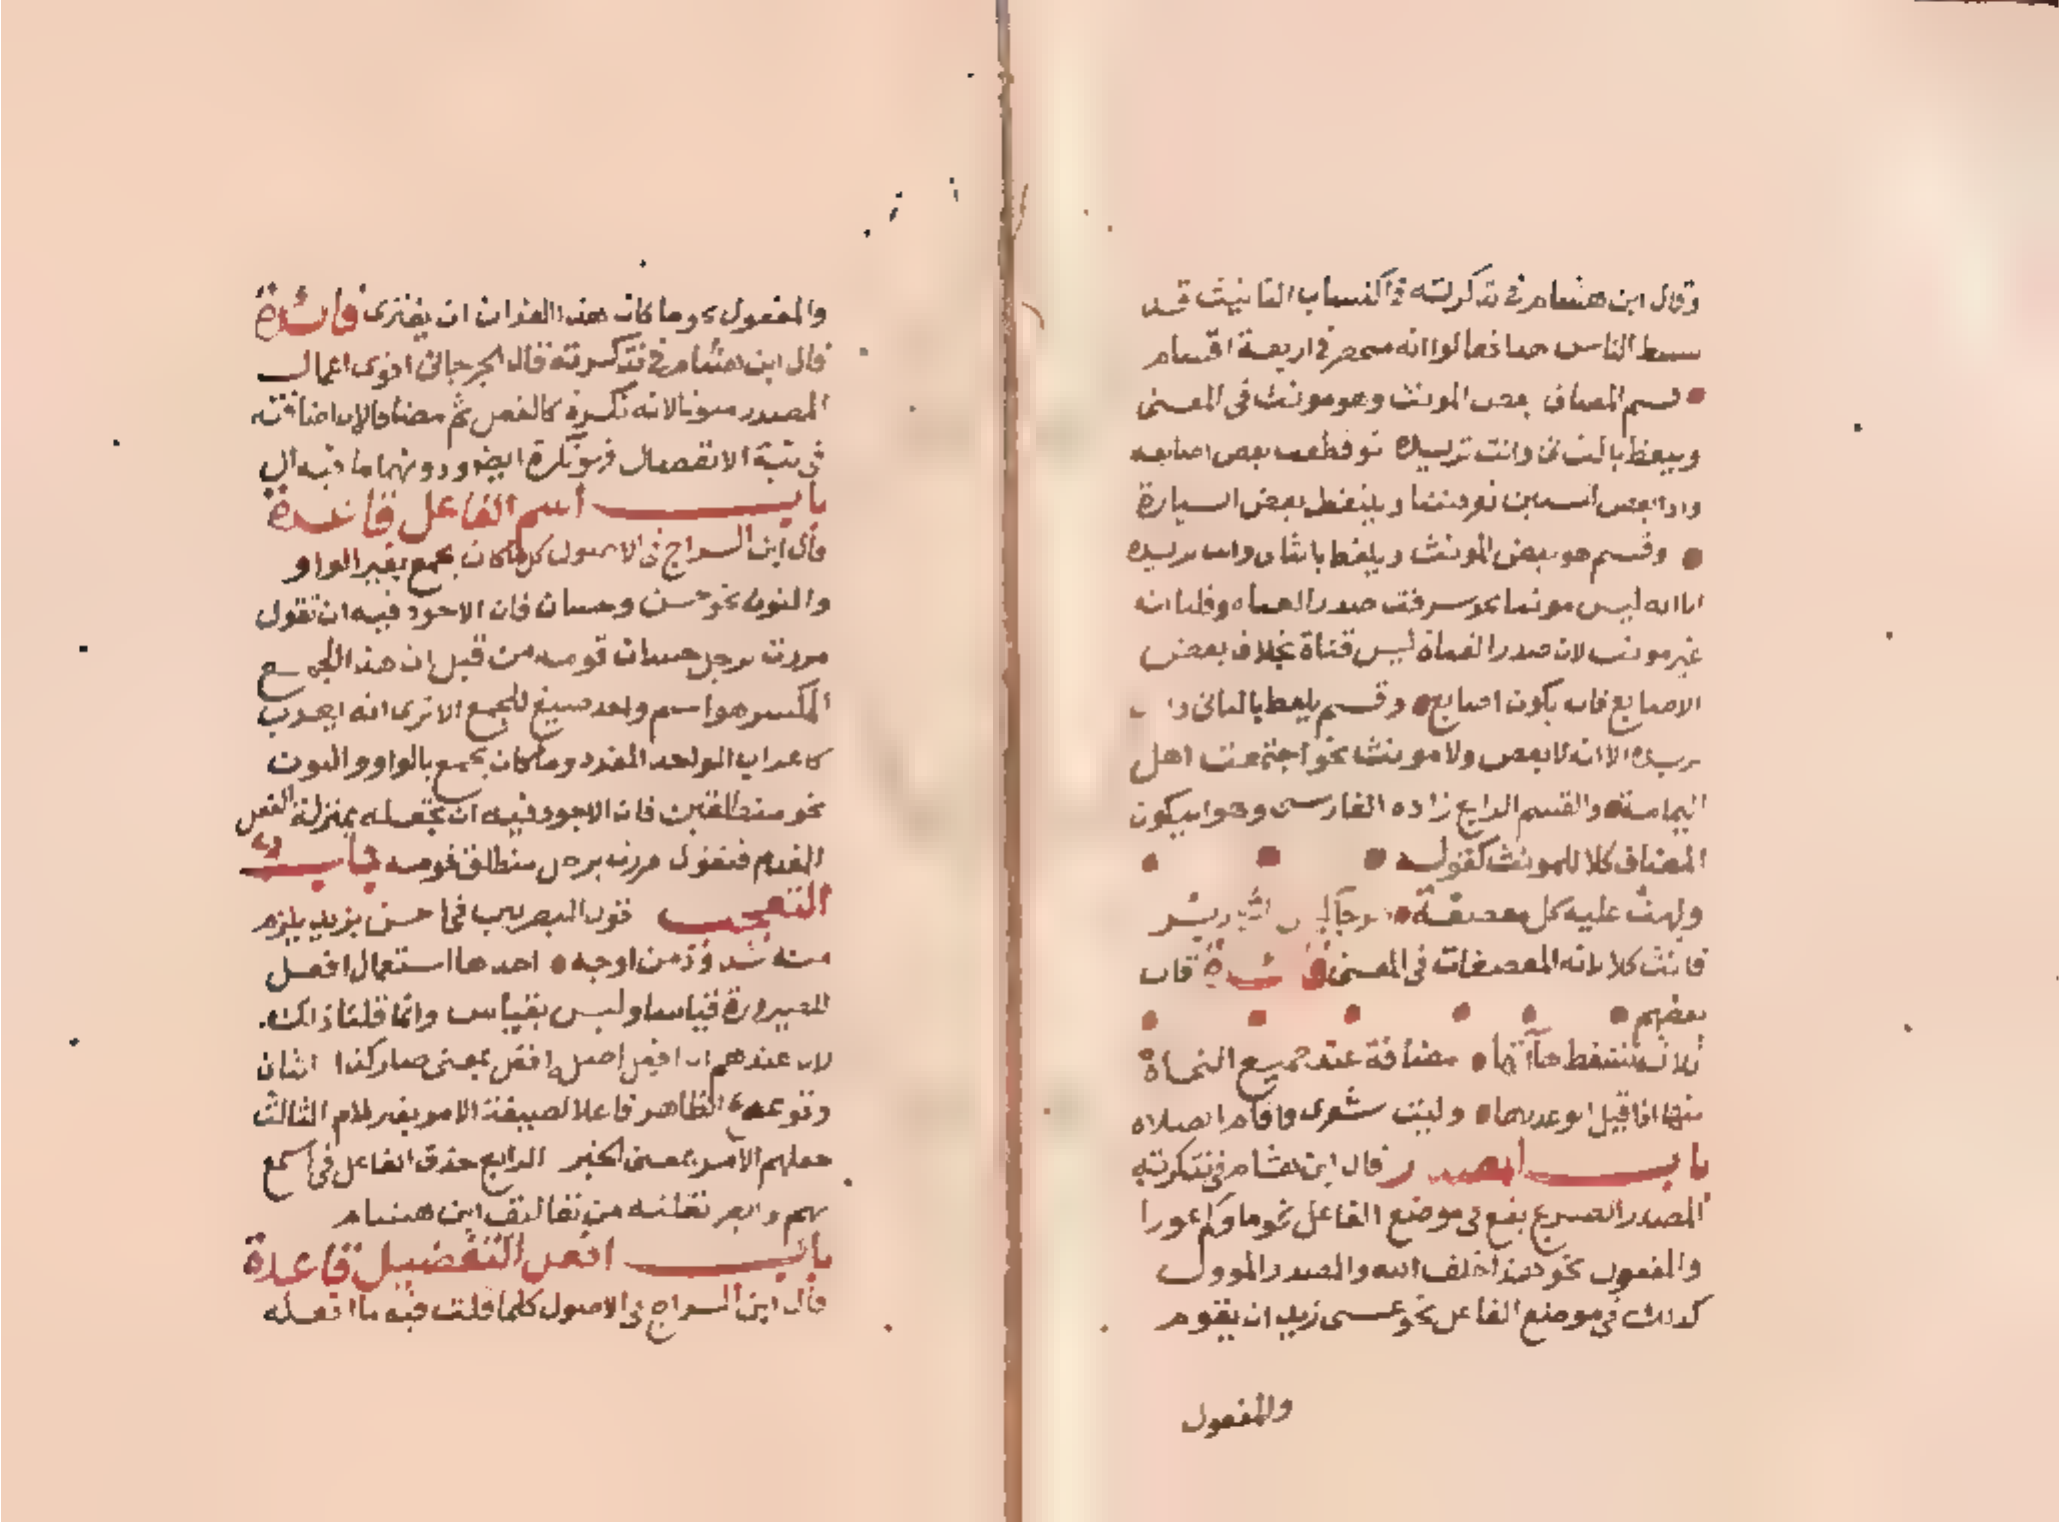 وقال ابن هشام في تذكرته في اكتساب التانيث قد
بسط الناس هذا فقالوا انه منحصر في اربعة اقسام
قسم المضاف بعض المونث وهو مونث في المعنى
ويلفظ بالثاني وانت تريده نحو قطعت بعض اصابعه
ويلتقطه بعض السيارة
وقسم هو بعض المونث ويلفظ بالثاني وانت تريده
الا انه ليس مونثا نحو شرقت صدر القناة وقلنا انه
غير مونث لان صدر القناة ليس قناة بخلاف بعض
الاصابع فانه يكون اصابع وقسم يلفظ بالثاني وانت
تريده الا انه لا بعض ولا مونث نحو اجتمعت اهل
اليمامة والقسم الرابع زاده الفارسي وهو ان يكون
المضاف كلا للمونث كقوله
ولهت عليه كل معصفة
فانث كلا لانه المعصفات في المعنى فائدة قال
بعضهم
ثلاثة تسقط هاآتها مضافة عند جميع النحاة
منها اذا قيل ابو عذرها وليت شعري واقام الصلاه
باب المصدر قال ابن هشام في تذكرته
المصدر الصريح يقع في موضع الفاعل نحو ماوكم غورا
والمفعول نحو هذا خلق الله والمصدر الموول
كذلك في موضع الفاعل نحو عسى زيد ان يقوم
والمفعول
والمفعول نحو وما كان هذا القران ان يفترى فائدة
قال ابن هشام في تذكرته قال الجرجاني اقوى اعمال
المصدر منونا لانه نكرة كالفعل ثم مضافا لان اضافته
في نية الانفصال فهو نكرة ايضا ودونهما ما فيه ال
باب اسم الفاعل قاعدة
قال ابن السراج في الاصول كل ما كان يجمع بغير الواو
والنون نحو حسن وحسان فان الاجود فيه ان تقول
مررت برجل حسان قومه من قبل ان هذا الجمع
المكسر هو اسم واحد صيغ للجمع الا ترى انه يعرب
كاعراب الواحد المفرد وما كان يجمع بالواو والنون
نحو منطلقين فان الاجود فيه ان تجعله بمنزلة الفعل
المقدم فتقول مررت برجل منطلق قومه باب
التعجب قول البصريين في احسن بزيد يلزم
منه شذوذ من اوجه احدها استعمال افعل
للصيرورة قياسا وليس بقياس وانما قلنا ذلك
لان عندهم ان افعل اصله افعل بمعنى صار كذا الثاني
وقوع الظاهر فاعلا لصيغة الامر بغير لام الثالث
جعلهم الامر بمعنى الخبر الرابع حذف الفاعل في اسمع
بهم وابصر نقلته من تعاليق ابن هشام
باب افعل التفضيل قاعدة
قال ابن السراج في الاصول كلما قلت فيه ما افعله